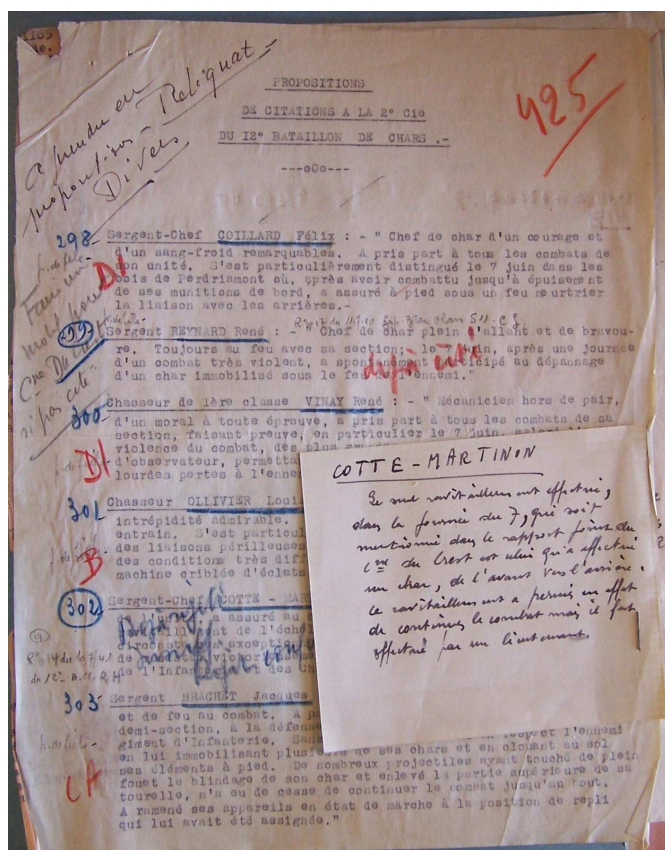 1185
425
A prendre en
propositions - Reliquat -
Divers
PROPOSITIONS
DE CITATIONS A LA 2° Cie
DU I2° BATAILLON DE CHARS .-
---oOo---
298 Sergent-Chef COILLARD Félix : - " Chef de char d'un courage et
d'un sang-froid remarquables. A pris part à tous les combats de
son unité. S'est particulièrement distingué le 7 juin dans les
bois de Perdriamont où, après avoir combattu jusqu'à épuisement
de ses munitions de bord, a assuré à pied sous un feu meurtrier
la liaison avec les arrières.-
D1
299 Sergent REYNARD René : - " Chef de char plein d'allant et de bravou-
re. Toujours au feu avec sa section; le juin, après une journée
d'un combat très violent, a spontanément participé au dépannage
d'un char immobilisé sous le feu de l'ennemi."
déjà cité
si pas cité
300 Chasseur de 1ère classe VINAY René : - " Mécanicien hors de pair,
d'un moral à toute épreuve, a pris part à tous les combats de sa
section, faisant preuve, en particulier le 7 juin, malgré
violence du combat, des plus
d'observateur, permetta
lourdes pertes à l'enne
D1
301 Chasseur OLLIVIER Loui
intrépidité admirable.
entrain. S'est particul
des liaisons périlleuses
des conditions très diff
machine criblée d'éclats
B
302 Sergent-Chef COTTE - MAR
a assuré au
de l'éche
exception
de l'Infan et des Ch
303 Sergent BRACHET Jacques
et de feu au combat. A p
demi-section, à la défense
giment d'Infanterie. San respect l'ennemi
en lui immobilisant plusieurs de ses chars et en clouant au sol
ses éléments à pied. De nombreux projectiles ayant touché de plein
fouet le blindage de son char et enlevé la partie supérieure de sa
tourelle, n'a eu de cesse de continuer le combat jusqu'au bout.
A ramené ses appareils en état de marche à la position de repli
qui lui avait été assignée."
CA
COTTE - MARTINON
Le seul ravitaillement effectué,
dans la journée du 7, qui soit
mentionné dans le rapport joint du
Cne du Crest est celui qu'a effectué
un char, de l'avant vers l'arrière.
Ce ravitaillement a permis en effet
de continuer le combat mais il fut
effectué par un lieutenant.